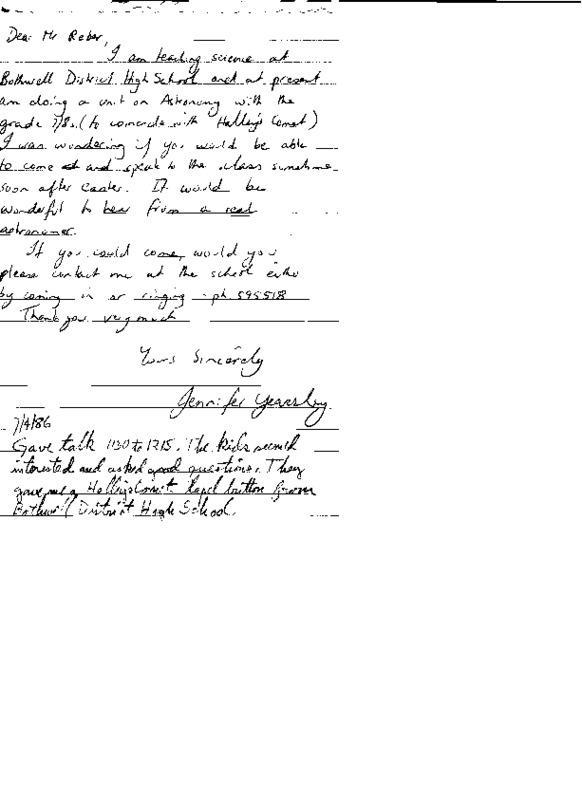 Dear Mr Reber,
I am teaching science at
Bothwell District High School and at present
am doing a unit on Astronomy with the
grade 7/8s. (to coincide with Halley's Comet)
I was wondering if you would be able
to come and speak to the class sometime
soon after Easter. It would be
wonderful to hear from a real
astronomer.
If you could come, would you
please contact me at the school either
by coming in or ringing - ph. 595518
Thank you very much
Yours Sincerely
Jennifer Yearsley
7/4/86
Gave talk 1130 to 1215. The kids seemed
interested and asked good questions. They
gave me a Halley's Comet lapel button from
Bothwell District High School.